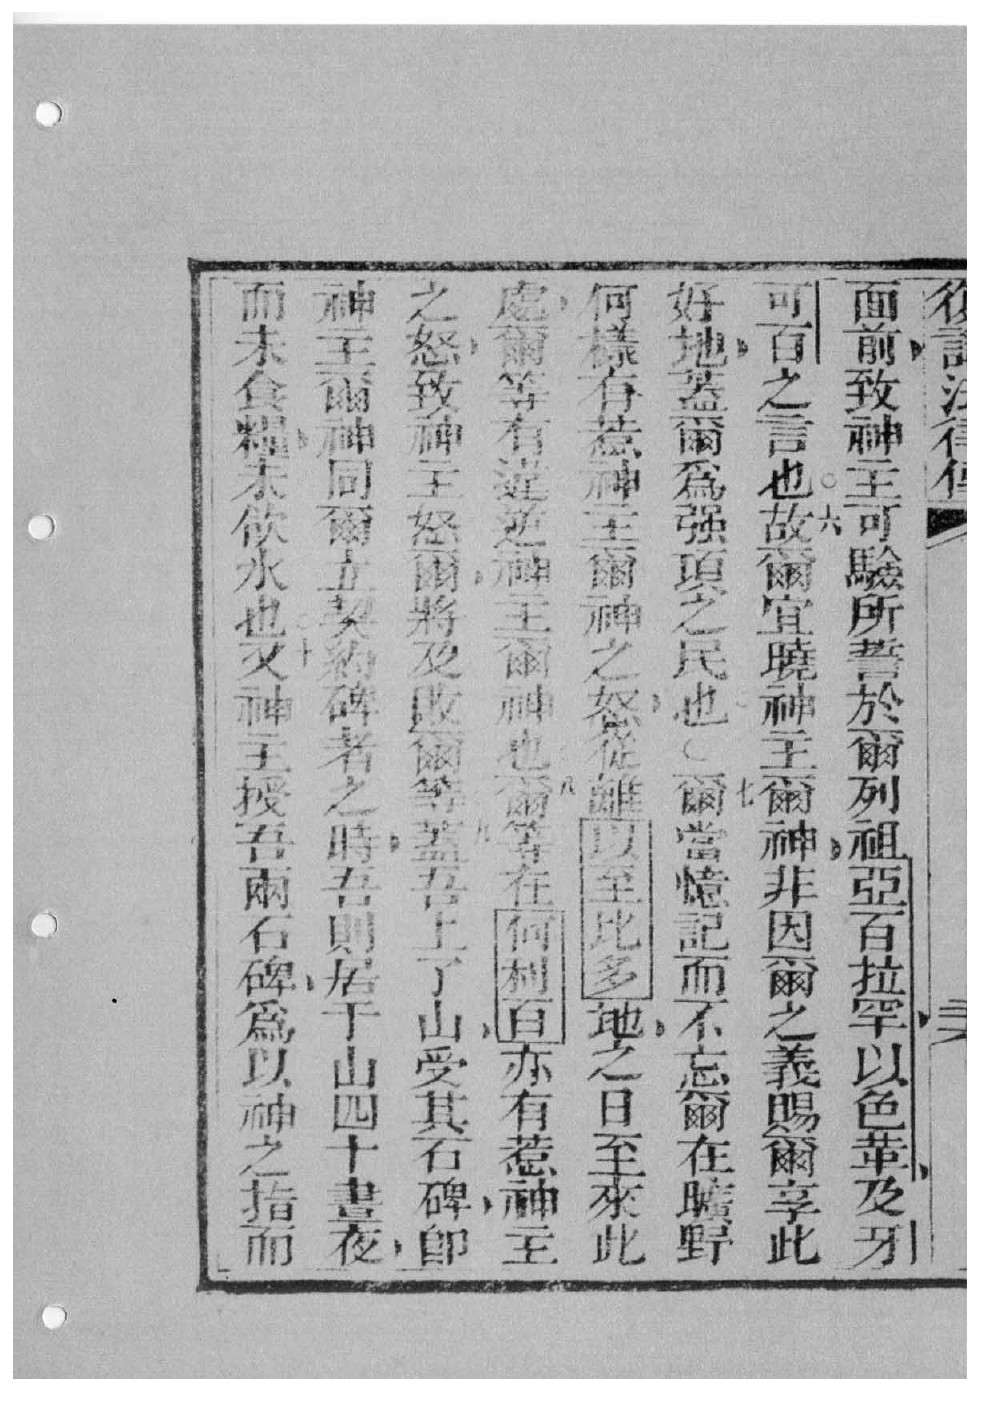 復講法律傳
面前致神主可驗所誓於爾列祖亞百拉罕以色革及牙
可百之言也○六故爾宜曉神主爾神非因爾之義賜爾享此
好地蓋爾爲强項之民也○七爾當憶記而不忘爾在曠野
何樣有惹神主爾神之怒從離以至比多地之日至來此
處爾等有逆神主爾神也八爾等在何利百亦有惹神主
之怒致神主怒爾將及敗爾等九蓋吾上了山受其石碑卽
神主爾神同爾立契約碑者之時吾則居于山四十晝夜
而未食糧未飲水也○十又神主授吾兩石碑爲以神之指而